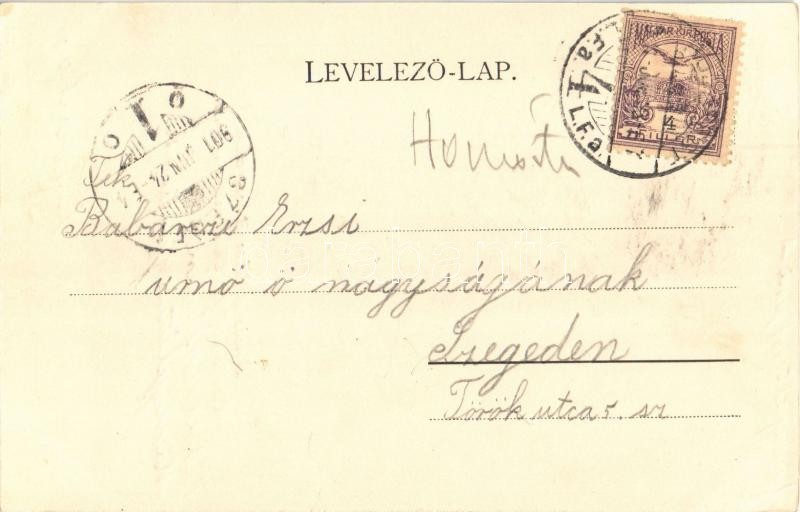 LEVELEZŐ-LAP.
MAGYAR KIR. POSTA
4
L.F.a.
901 JUN 24
Tek.
Babarczi Erzsi
urnő ő nagyságának
Szegeden
Török utca 5. sz